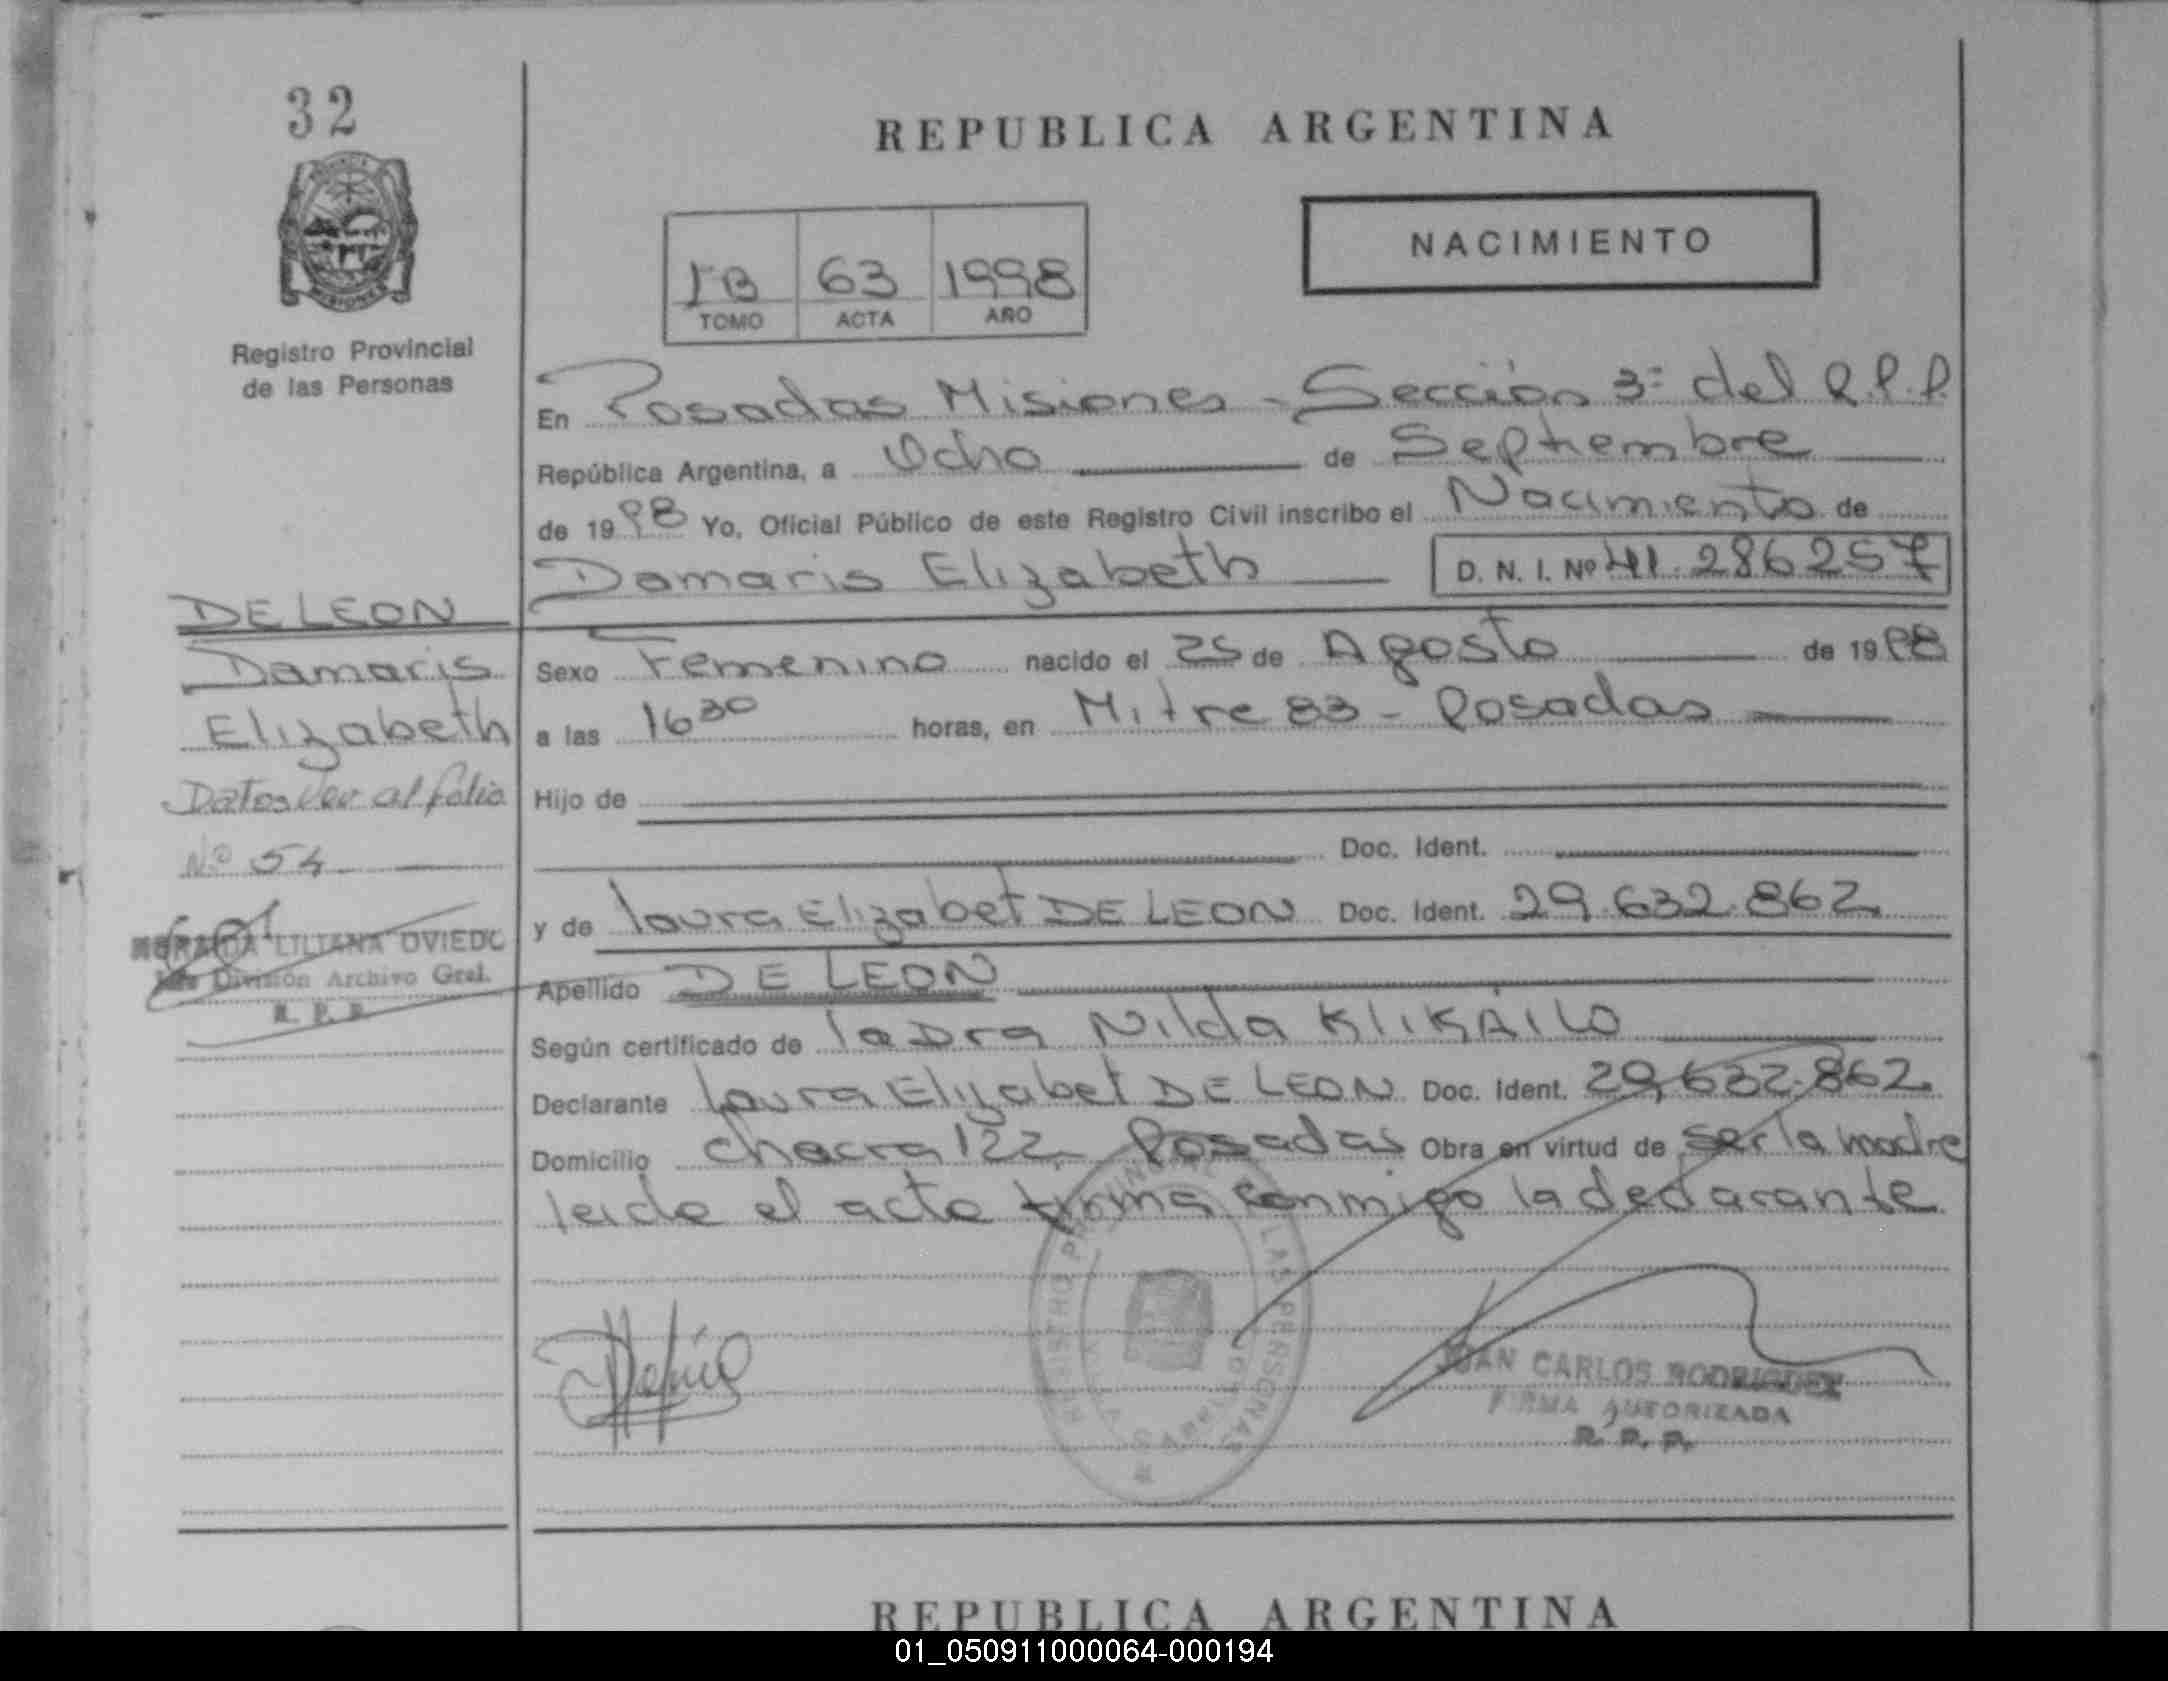 32
REPUBLICA ARGENTINA
NACIMIENTO
63 1998
TOMO ACTA AÑO
MISIONES
Registro Provincial
de las Personas
En Posadas Misiones - Sección 3ª del R.P.P.
República Argentina, a Ocho de Septiembre
de 1998 Yo, Oficial Público de este Registro Civil inscribo el Nacimiento de
Damaris Elizabeth D. N. I. Nº 41.286257
DE LEON
Damaris
Elizabeth
Datos Ver al folio
Nº 54
LILIANA OVIEDO
División Archivo Gral.
R. P. P.
Sexo Femenino nacido el 25 de Agosto de 1998
a las 16 30 horas, en Mitre 83 - Posadas
Hijo de
Doc. Ident.
y de Laura Elizabet DE LEON Doc. Ident. 29.632.862
Apellido DE LEON
Según certificado de la Dra Nilda KLIKAILO
Declarante Laura Elizabet DE LEON Doc. Ident. 29,632.862
Domicilio chacra 122 Posadas Obra en virtud de ser la madre
leida el acta firma conmigo la declarante
JUAN CARLOS RODRIGUEZ
FIRMA AUTORIZADA
R. P. P.
REPUBLICA ARGENTINA
01_050911000064-000194